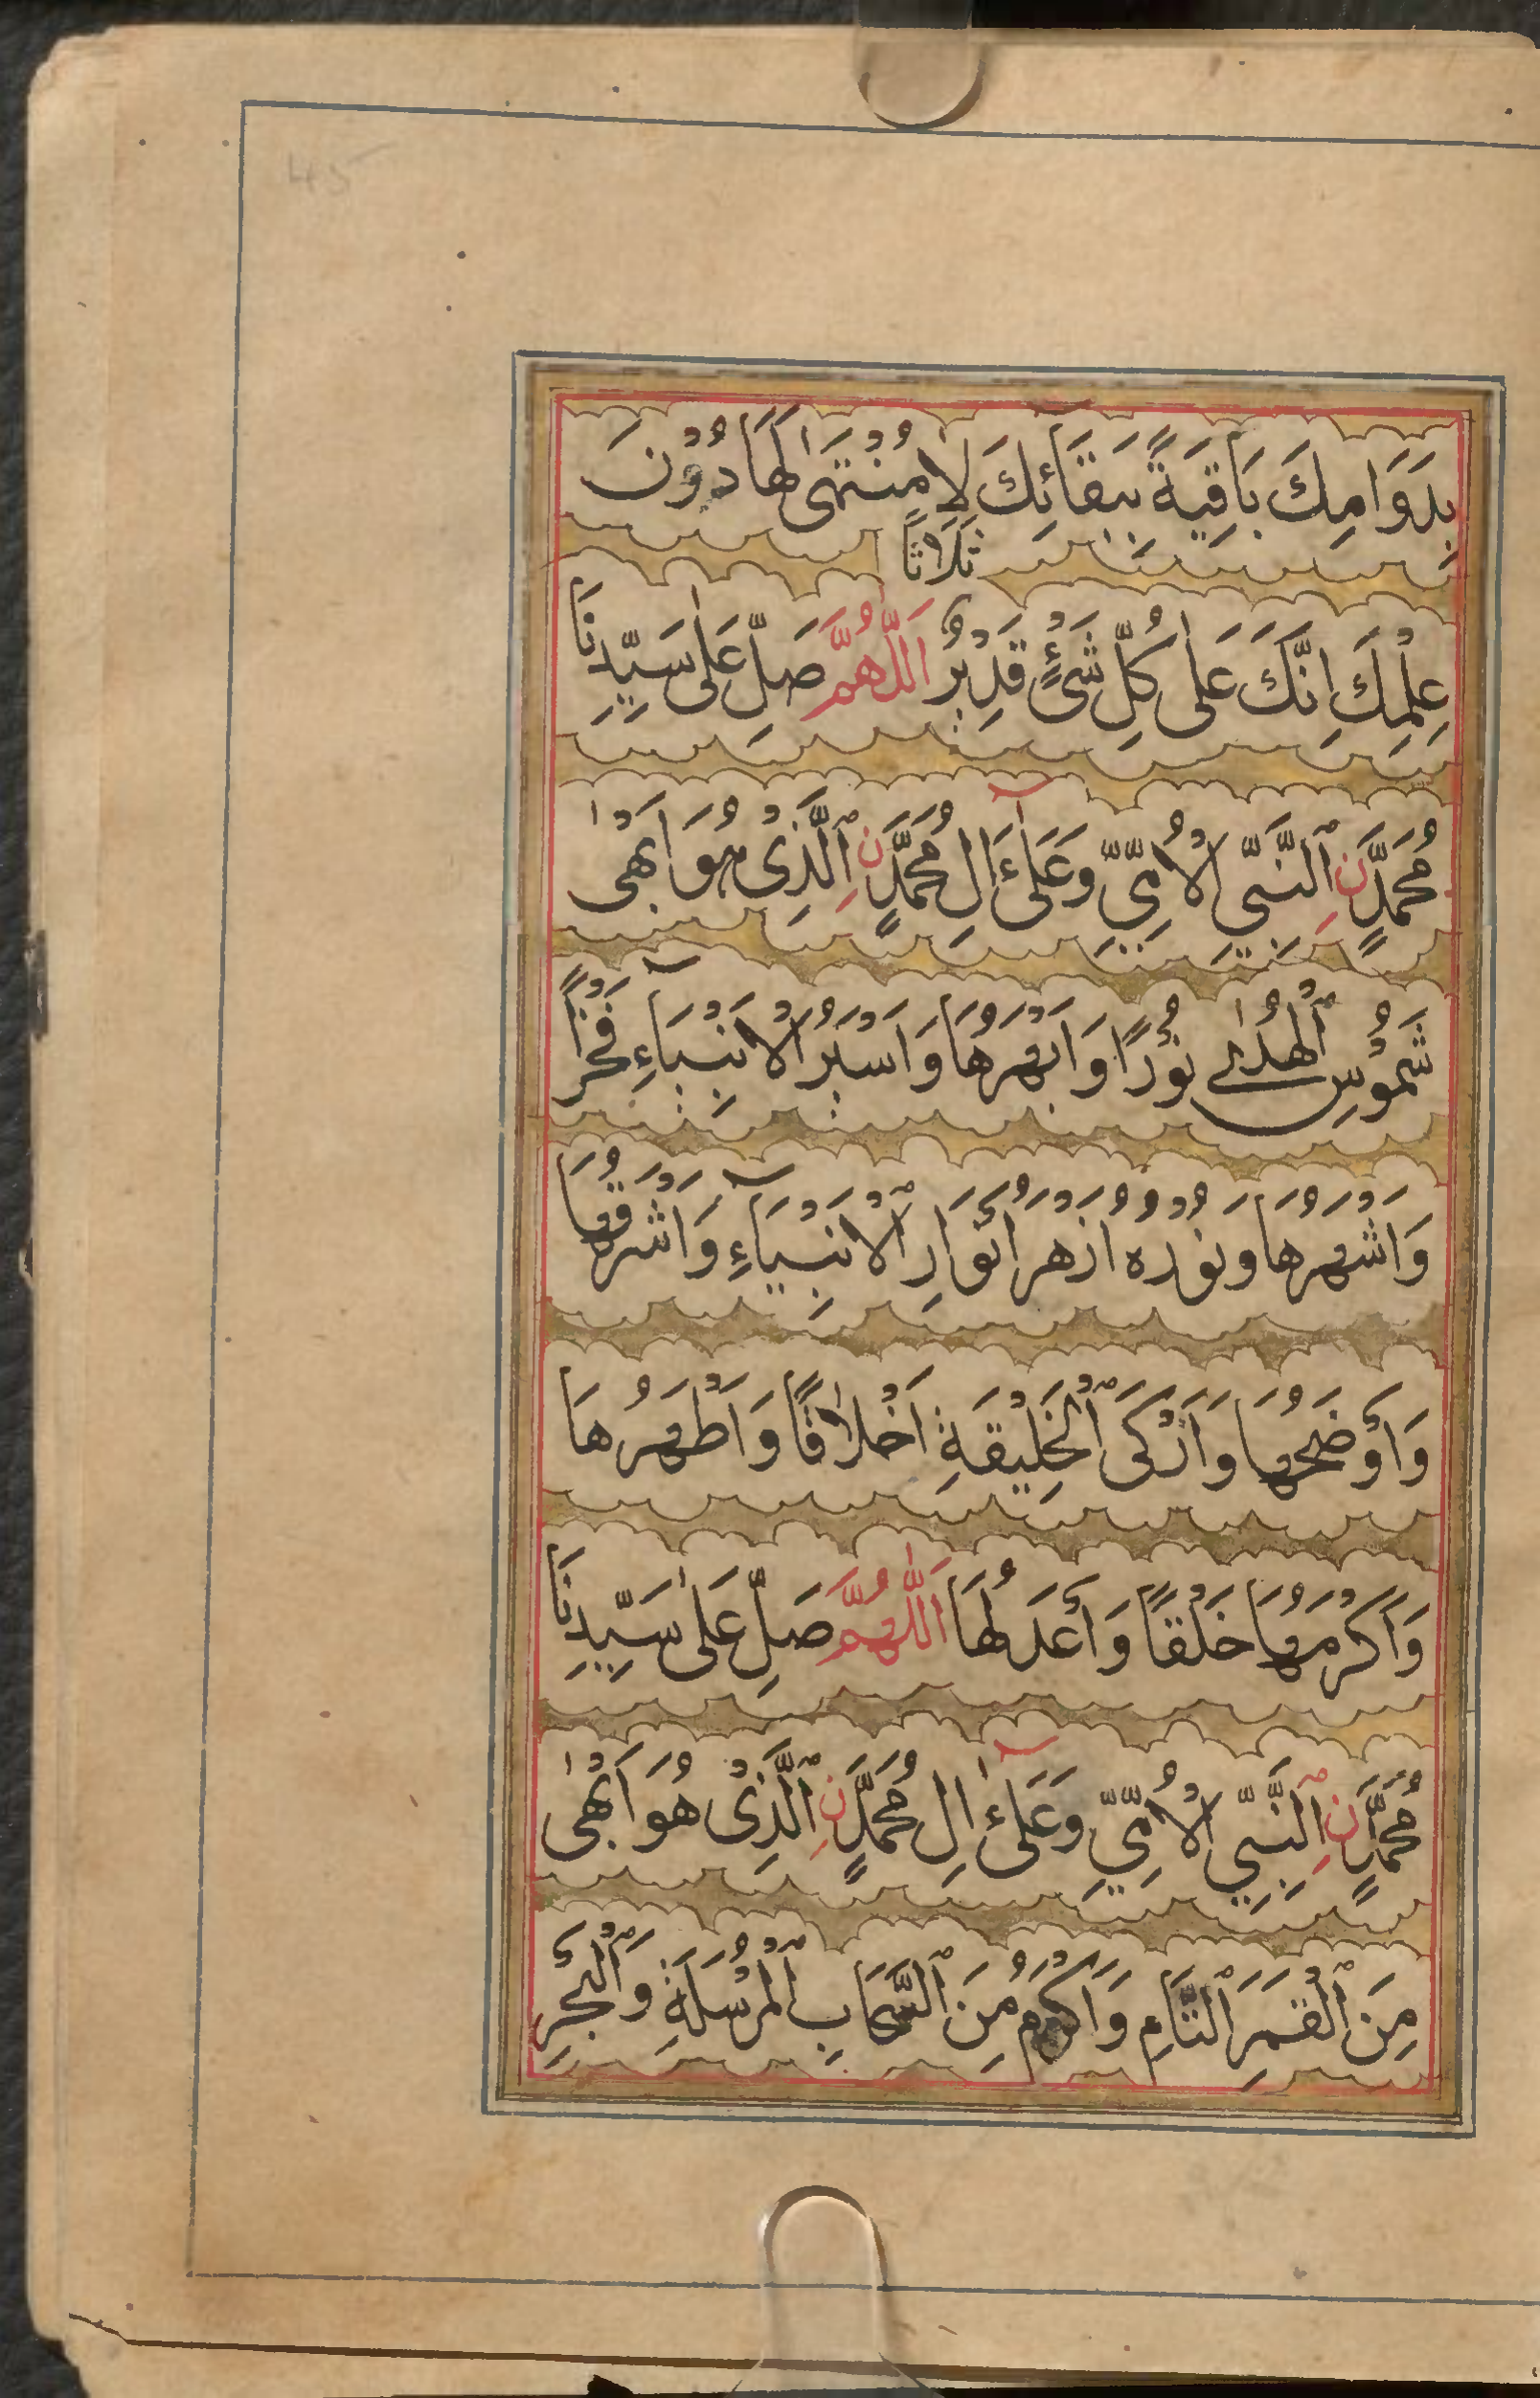 45
بِدَوَامِكَ بَاقِيَةً بِبَقَائِكَ لَا مُنْتَهٰى لَهَا دُوْنَ
ثَلَاثًا
عِلْمِكَ اِنَّكَ عَلٰى كُلِّ شَيْءٍ قَدِيْرٌ اَللّٰهُمَّ صَلِّ عَلٰى سَيِّدِنَا
مُحَمَّدٍ نِ النَّبِيِّ الْاُمِّيِّ وَعَلٰٓى اٰلِ مُحَمَّدٍ نِ الَّذِىْ هُوَ اَبْهٰى
شُمُوْسِ الْهُدٰى نُوْرًا وَاَبْهَرُهَا وَاَسْيَرُ الْاَنْبِيَآءِ فَخْرًا
وَاَشْهَرُهَا وَنُوْرُهُ اَزْهَرُ اَنْوَارِ الْاَنْبِيَآءِ وَاَشْرَقُهَا
وَاَوْضَحُهَا وَاَزْكَى الْخَلِيْقَةِ اَخْلَاقًا وَاَطْهَرُهَا
وَاَكْرَمُهَا خَلْقًا وَاَعْدَلُهَا اَللّٰهُمَّ صَلِّ عَلٰى سَيِّدِنَا
مُحَمَّدٍ نِ النَّبِيِّ الْاُمِّيِّ وَعَلٰٓى اٰلِ مُحَمَّدٍ نِ الَّذِىْ هُوَ اَبْهٰى
مِنَ الْقَمَرِ التَّامِّ وَاَكْرَمُ مِنَ السَّحَابِ الْمُرْسَلَةِ وَالْبَحْرِ